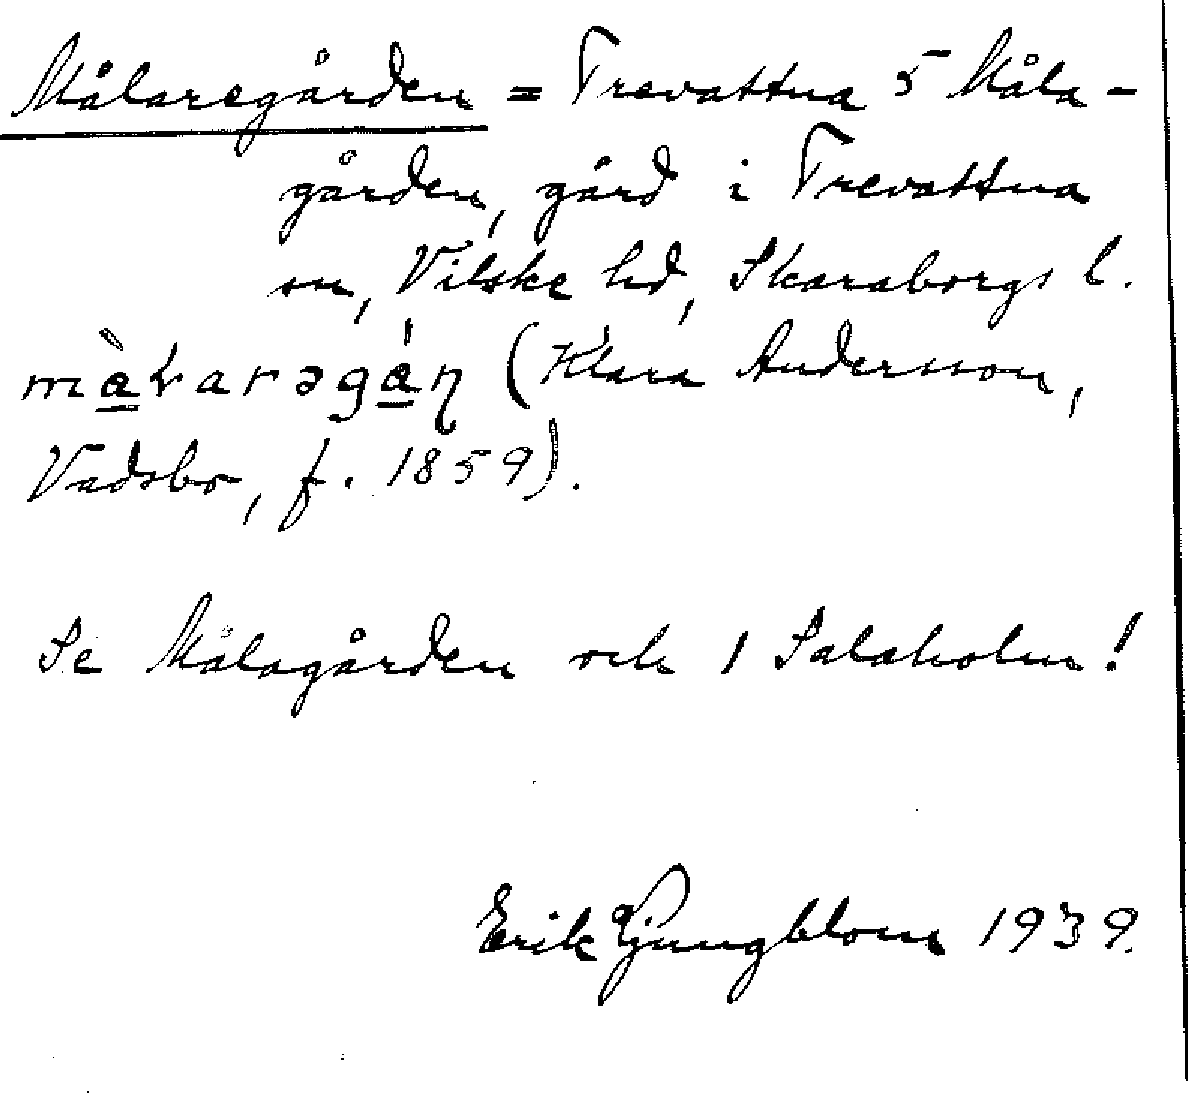 Målaregården = Trevattna 5 Måla-
gården, gård i Trevattna
sn, Vilske hd, Skaraborgs l.
(Klara Andersson,
Vadsbo, f. 1859).
Se Målagården och 1 Salaholm!
Erik Ljungblom 1939.